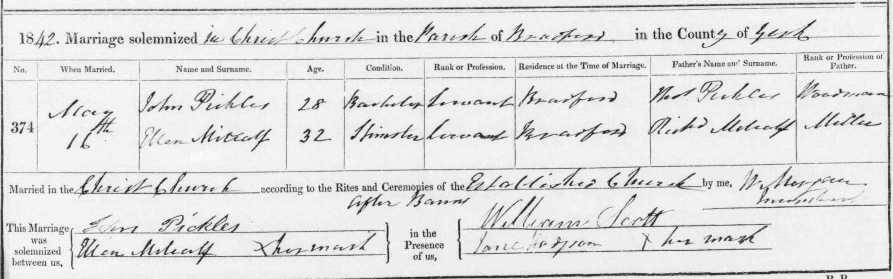 1842. Marriage solemnized in Christ Church in the Parish of Bradford in the County of York
No. When Married. Name and Surname. Age. Condition. Rank or Profession. Residence at the Time of Marriage. Father's Name and Surname. Rank or Profession of Father.
374 May 16th John Pickles 28 Bachelor Servant Bradford Thos Pickles Woodman
Ellen Metcalf 32 Spinster Servant Bradford Richd Metcalf Miller
Married in the Christ Church according to the Rites and Ceremonies of the Established Church by me, Wm Morgan
after Banns
This Marriage was solemnized between us, John Pickles in the Presence of us, William Scott
Ellen Metcalf X her mark Jane Hodgson X her mark